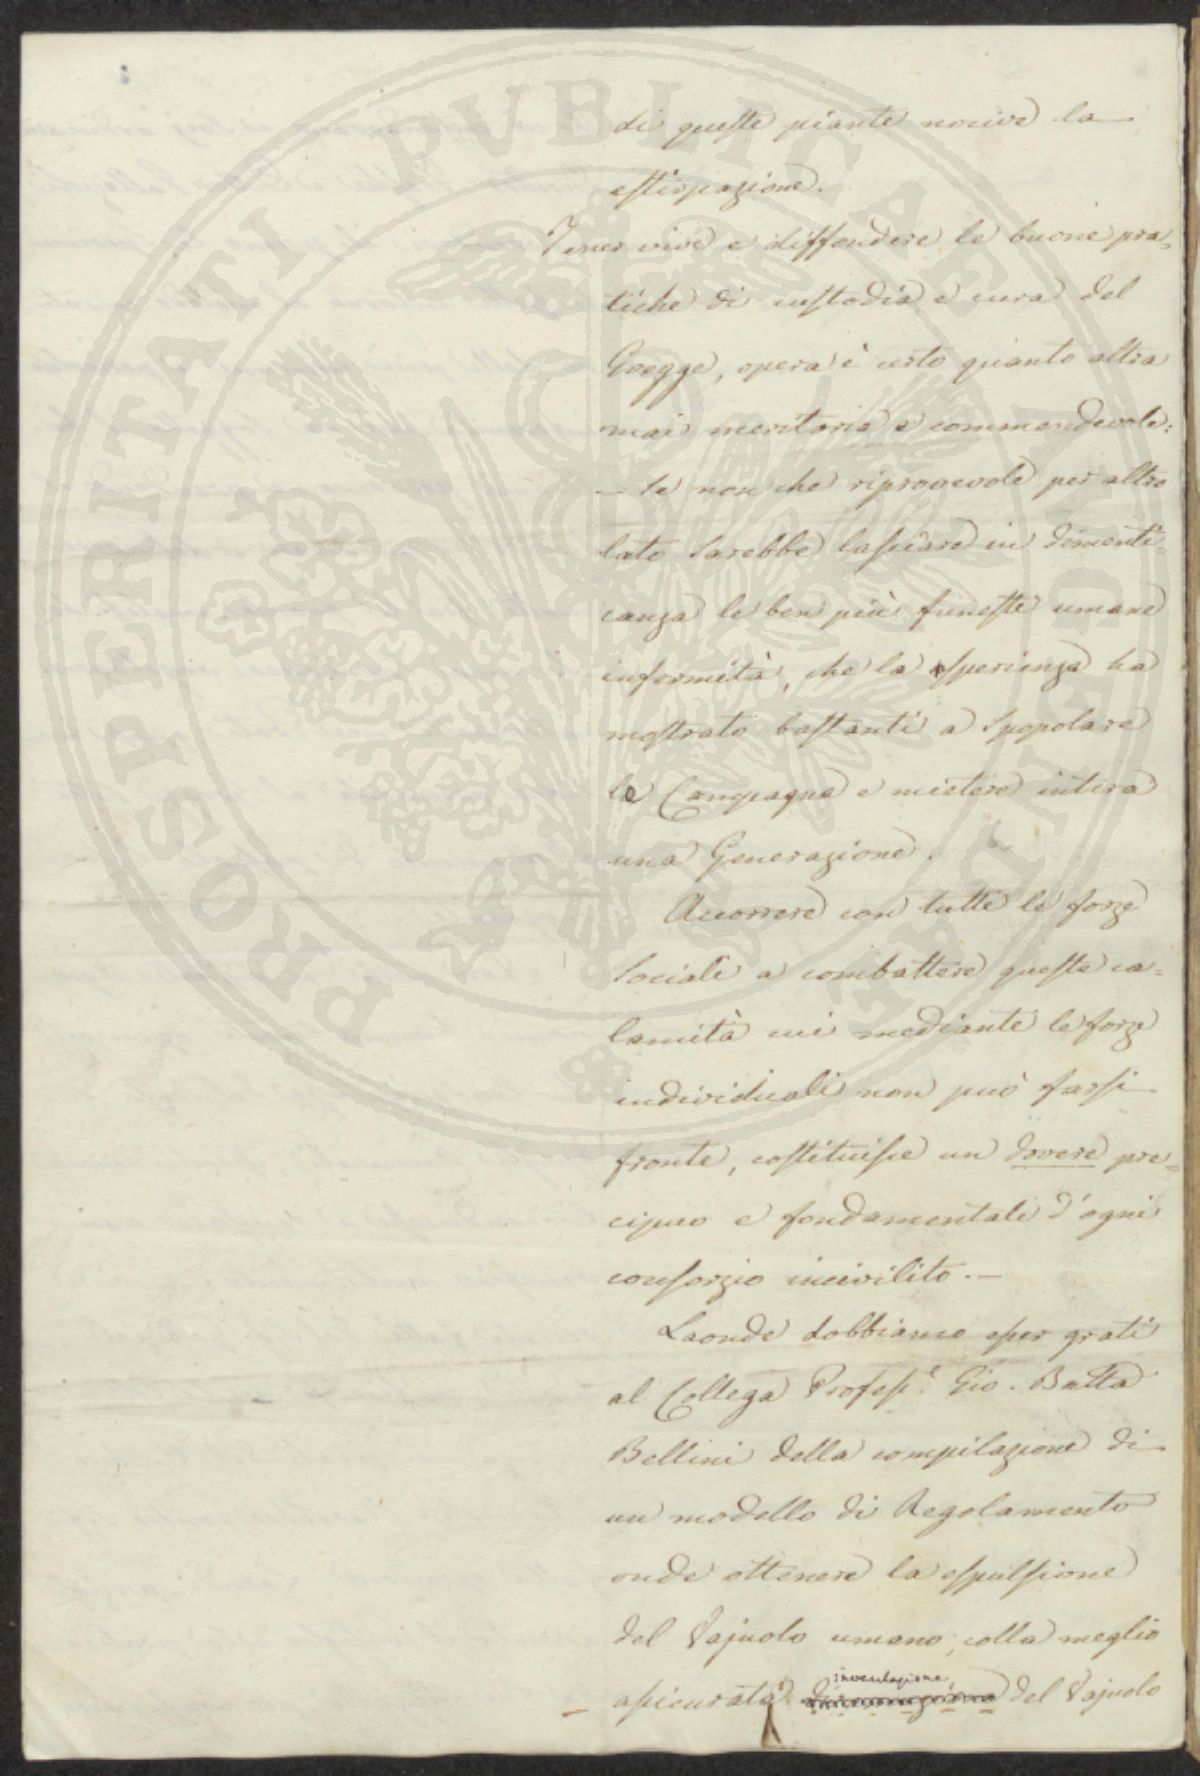 di queste piante nocive la
estirpazione.
Tener vive e diffondere le buone pra=
tiche di custodia e cura del
Gregge, opera è certo quanto altra
mai meritoria e commendevole:
– Se non che riprovevole per altro
lato sarebbe lasciare in dimenti=
canza le ben più funeste umane
infermità, che la esperienza ha
mostrato bastanti a spopolare
le Campagne e mietere intera
una Generazione.
Accorrere con tutte le forze
Sociali a combattere queste ca=
lamità cui mediante le forze
individuali non può farsi
fronte, costituisce un dovere pre=
cipuo e fondamentale d'ogni
consorzio incivilito. –
Laonde dobbiamo esser grati
al Collega Profess.e Gio. Batta
Bellini della compilazione di
un modello di Regolamento
onde ottenere la espulsione
del Vajuolo umano, colla meglio
inoculazione
– assicurata del Vajuolo
PROSPERITATI PUBLICAE AUGENDAE